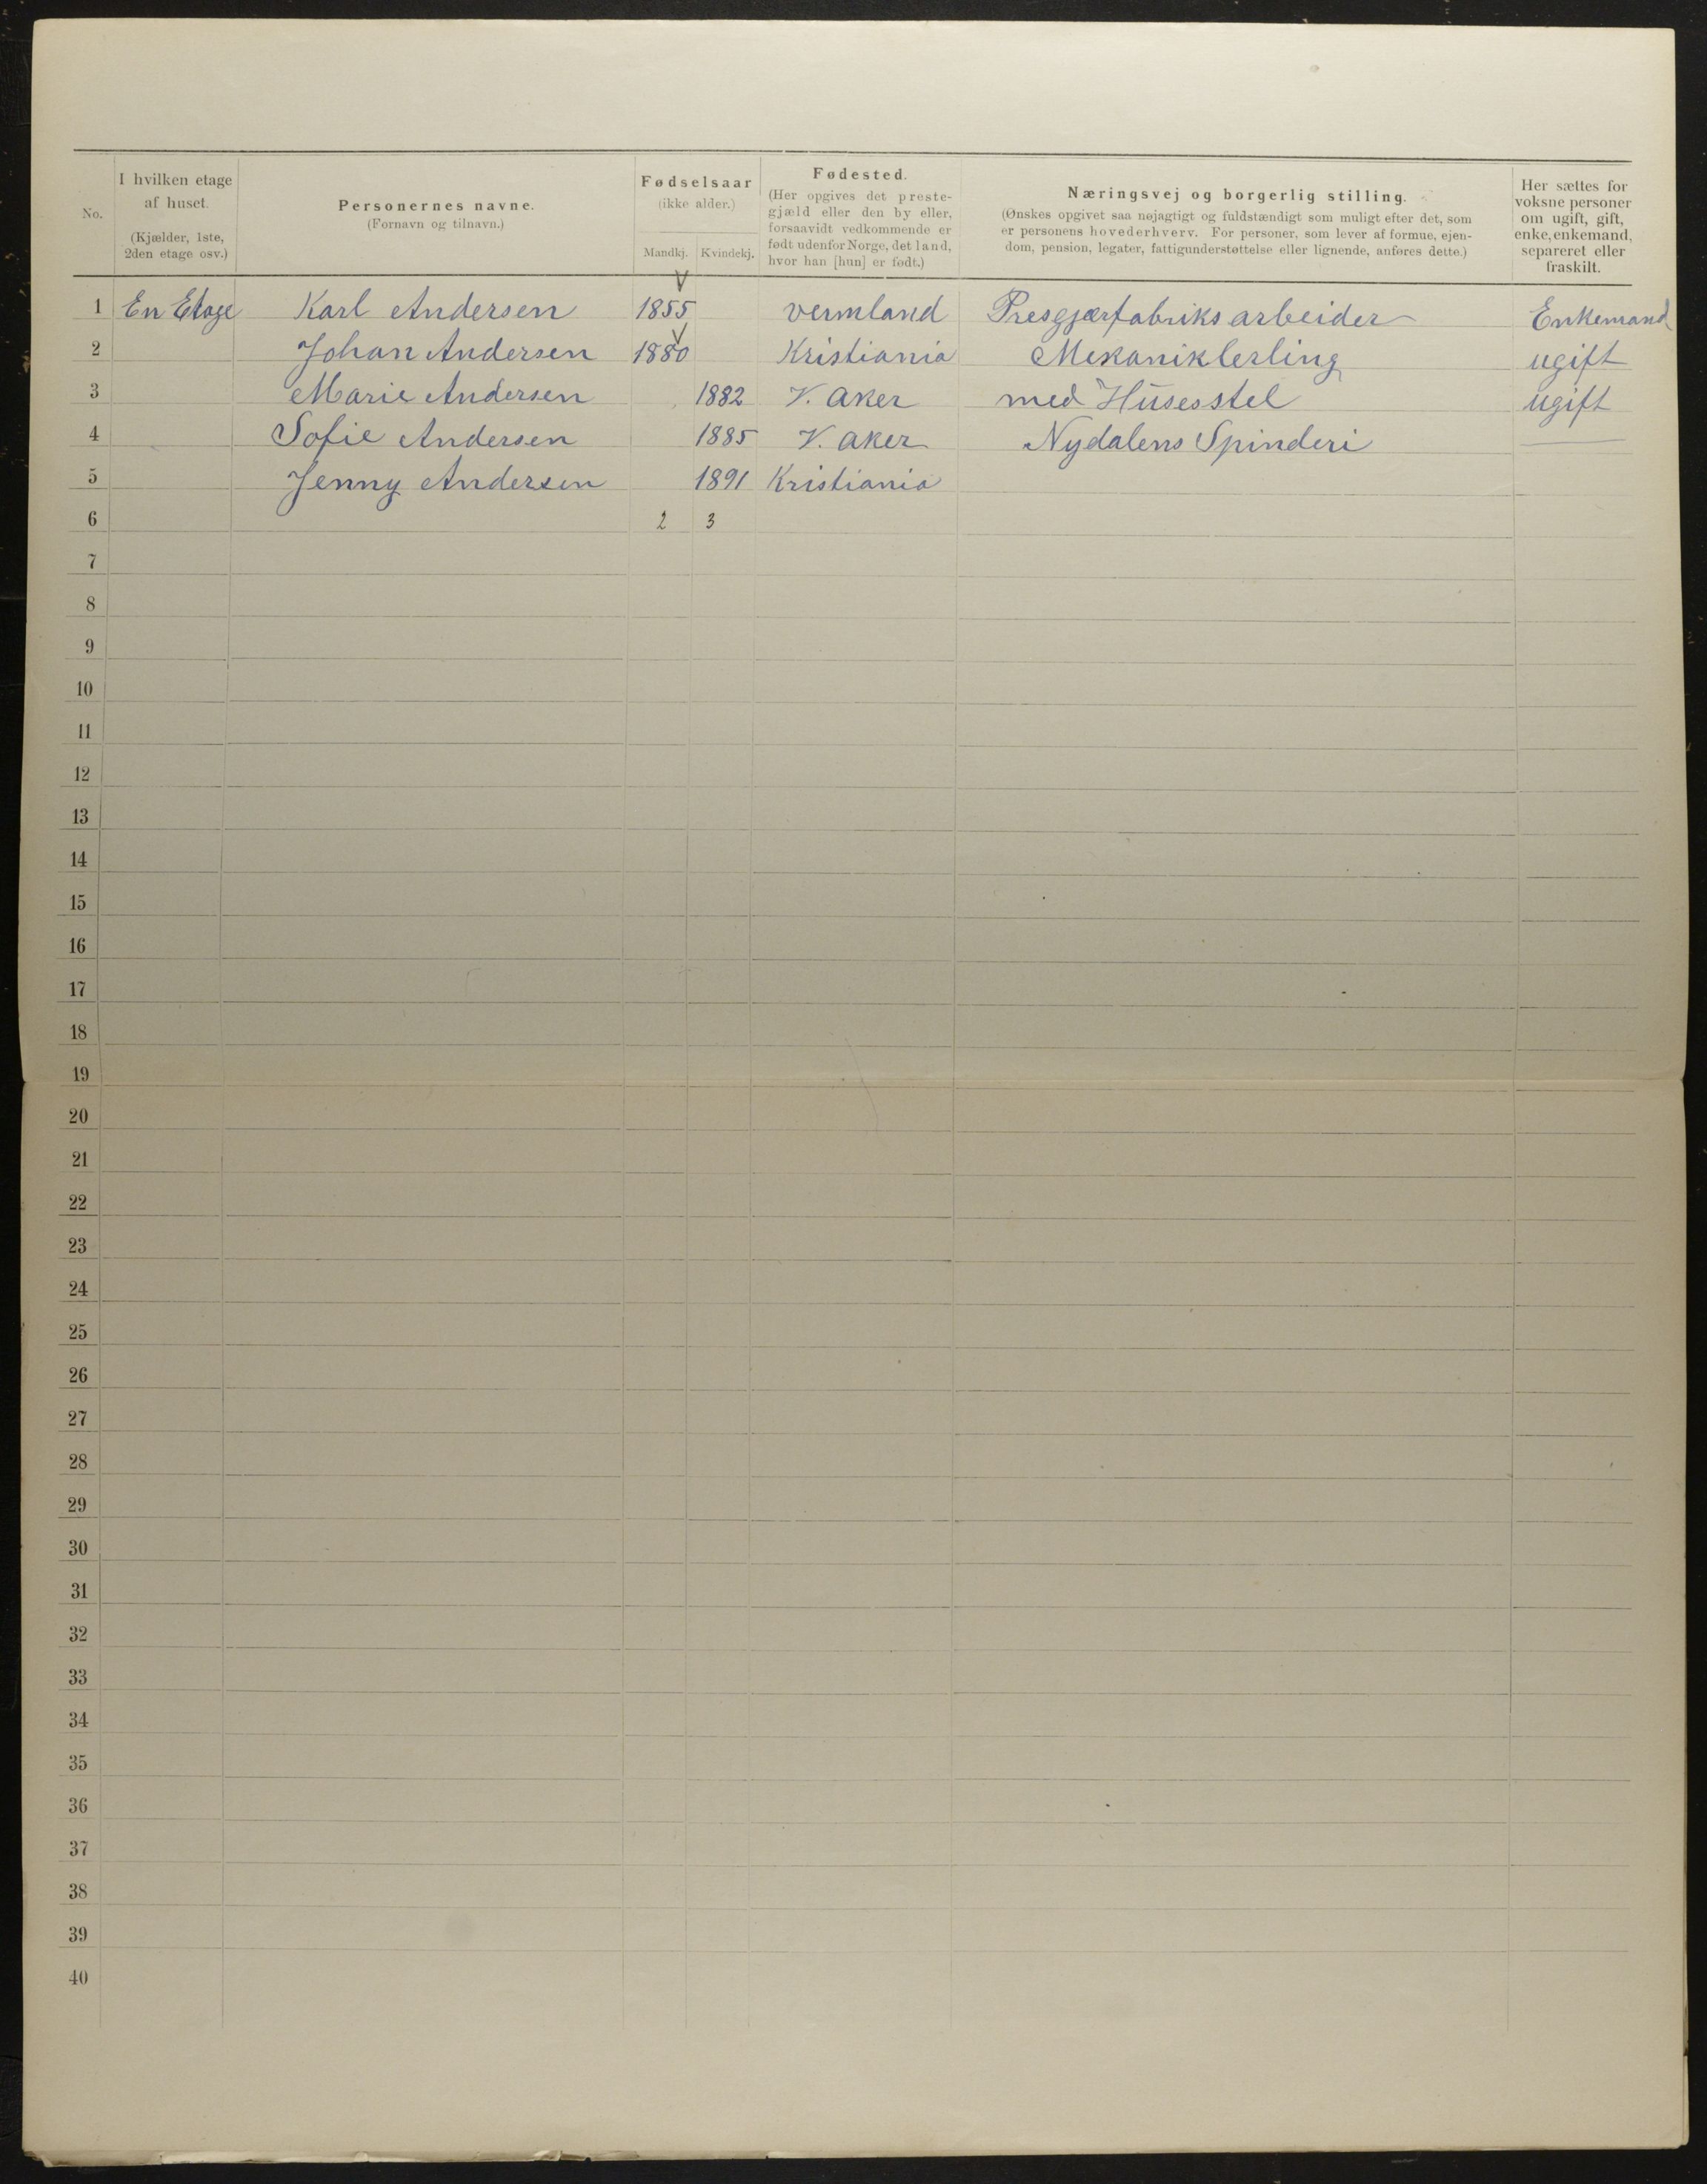 No. | I hvilken etage af huset. (Kjælder, 1ste, 2den etage osv.) | Personernes navne. (Fornavn og tilnavn.) | Fødselsaar (ikke alder.) Mandkj. | Kvindekj. | Fødested. (Her opgives det prestegjæld eller den by eller, forsaavidt vedkommende er født udenfor Norge, det land, hvor han [hun] er født.) | Næringsvej og borgerlig stilling. (Ønskes opgivet saa nøjagtigt og fuldstændigt som muligt efter det, som er personens hovederhverv. For personer, som lever af formue, ejendom, pension, legater, fattigunderstøttelse eller lignende, anføres dette.) | Her sættes for voksne personer om ugift, gift, enke, enkemand, separeret eller fraskilt.
1 En Etage Karl Andersen 1855 vermland Presgjærfabriks arbeider Enkemand
2 Johan Andersen 1880 Kristiania Mekaniklerling ugift
3 Marie Andersen 1882 V. Aker med Husesstel ugift
4 Sofie Andersen 1885 V. Aker Nydalens Spinderi
5 Jenny Andersen 1891 Kristiania
6 2 3
7
8
9
10
11
12
13
14
15
16
17
18
19
20
21
22
23
24
25
26
27
28
29
30
31
32
33
34
35
36
37
38
39
40